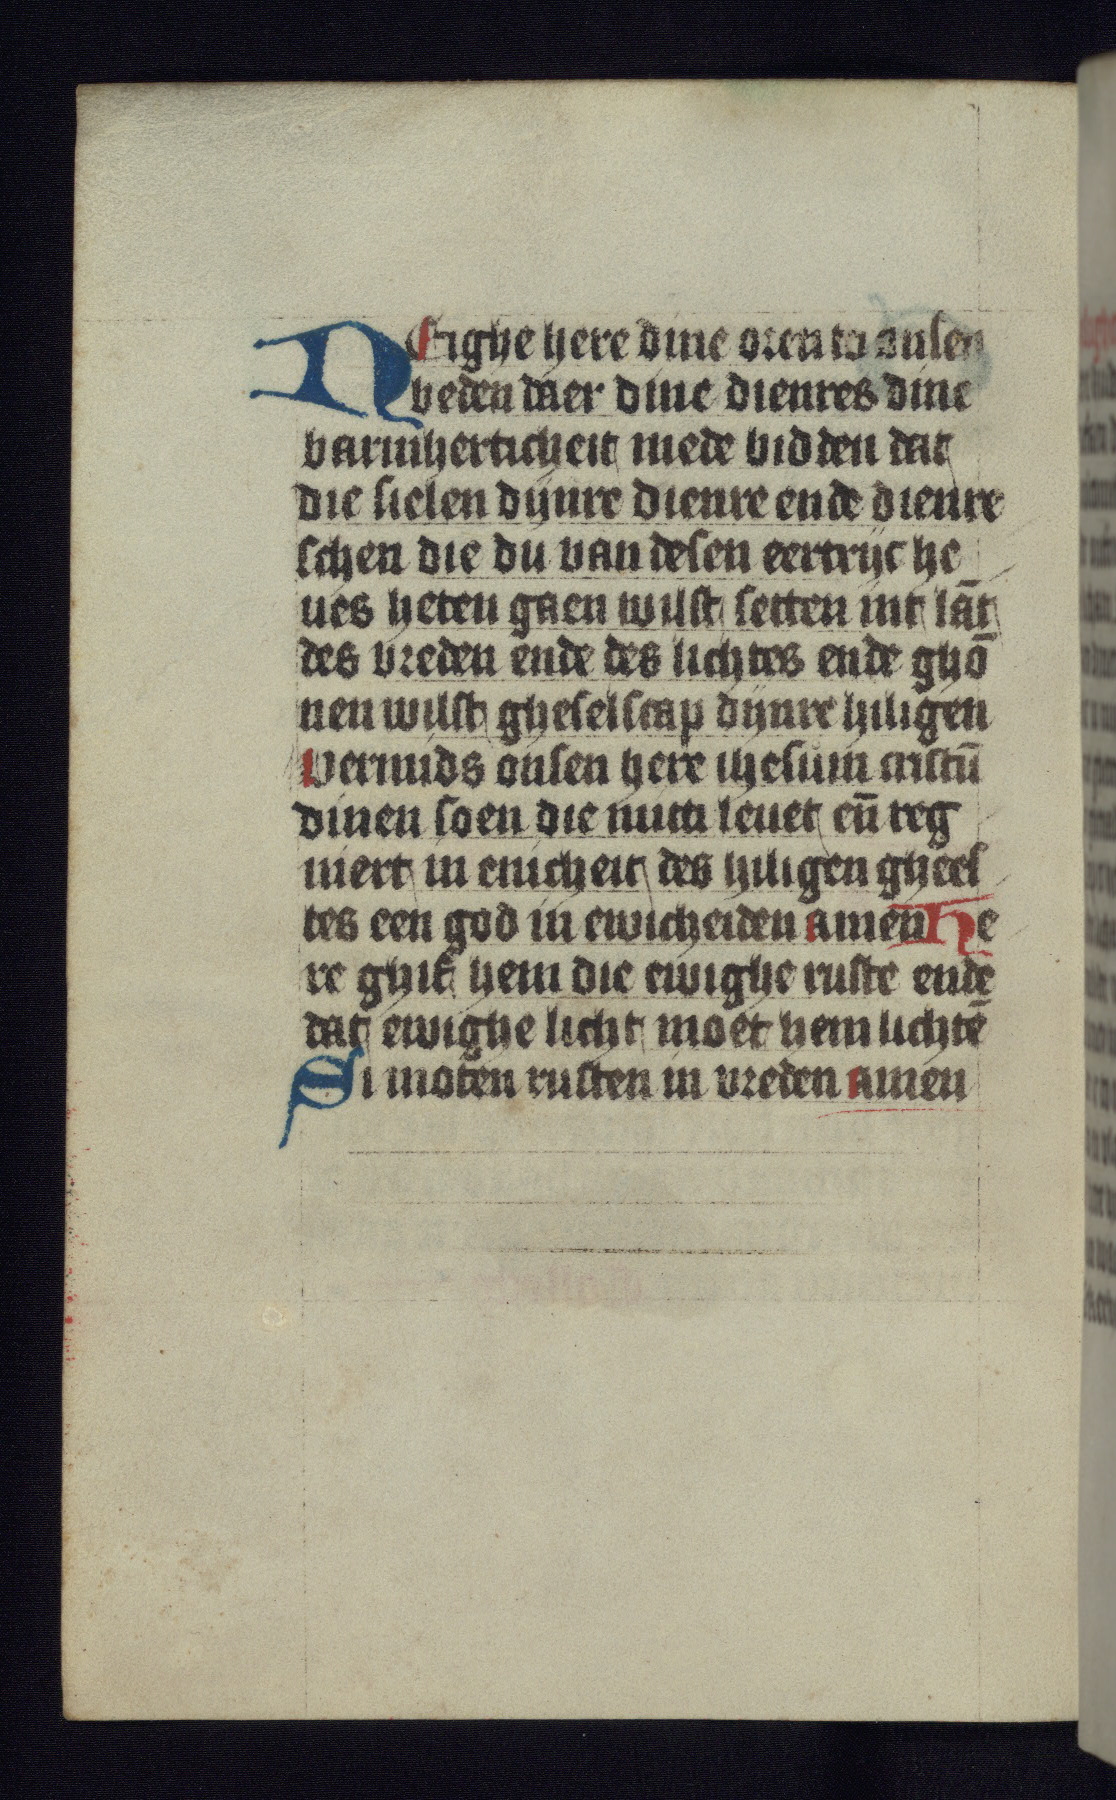 NEighe here dine oren to onsen
beden daer dine dienres dine
barmherticheit mede bidden dat
die sielen dijnre dienre ende dienre
schen die du van desen eertrijc he
ues heten gaen wilst setten int lāt
des vreden ende des lichtes ende ghō
nen wilst gheselscap dijnre hiligen
Vermids onsen here ihesum cristū
dinen soen die mitti leuet eñ reg
niert in enicheit des hiligen ghees
tes een god in ewicheiden amen He
re ghif hem die ewighe ruste ende
dat ewighe licht moet hem lichtē
Si moten rusten in vreden amen